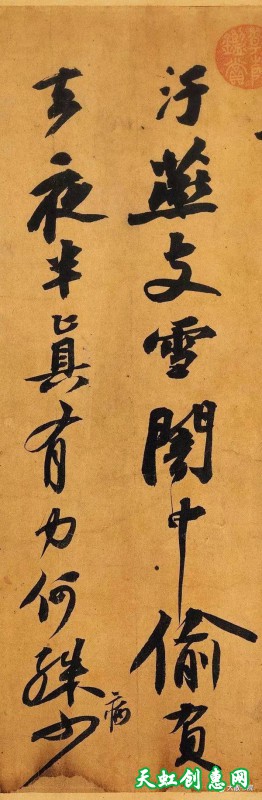 汙燕支雪闇中偷負
去夜半真有力何殊少
病
天虹创惠网